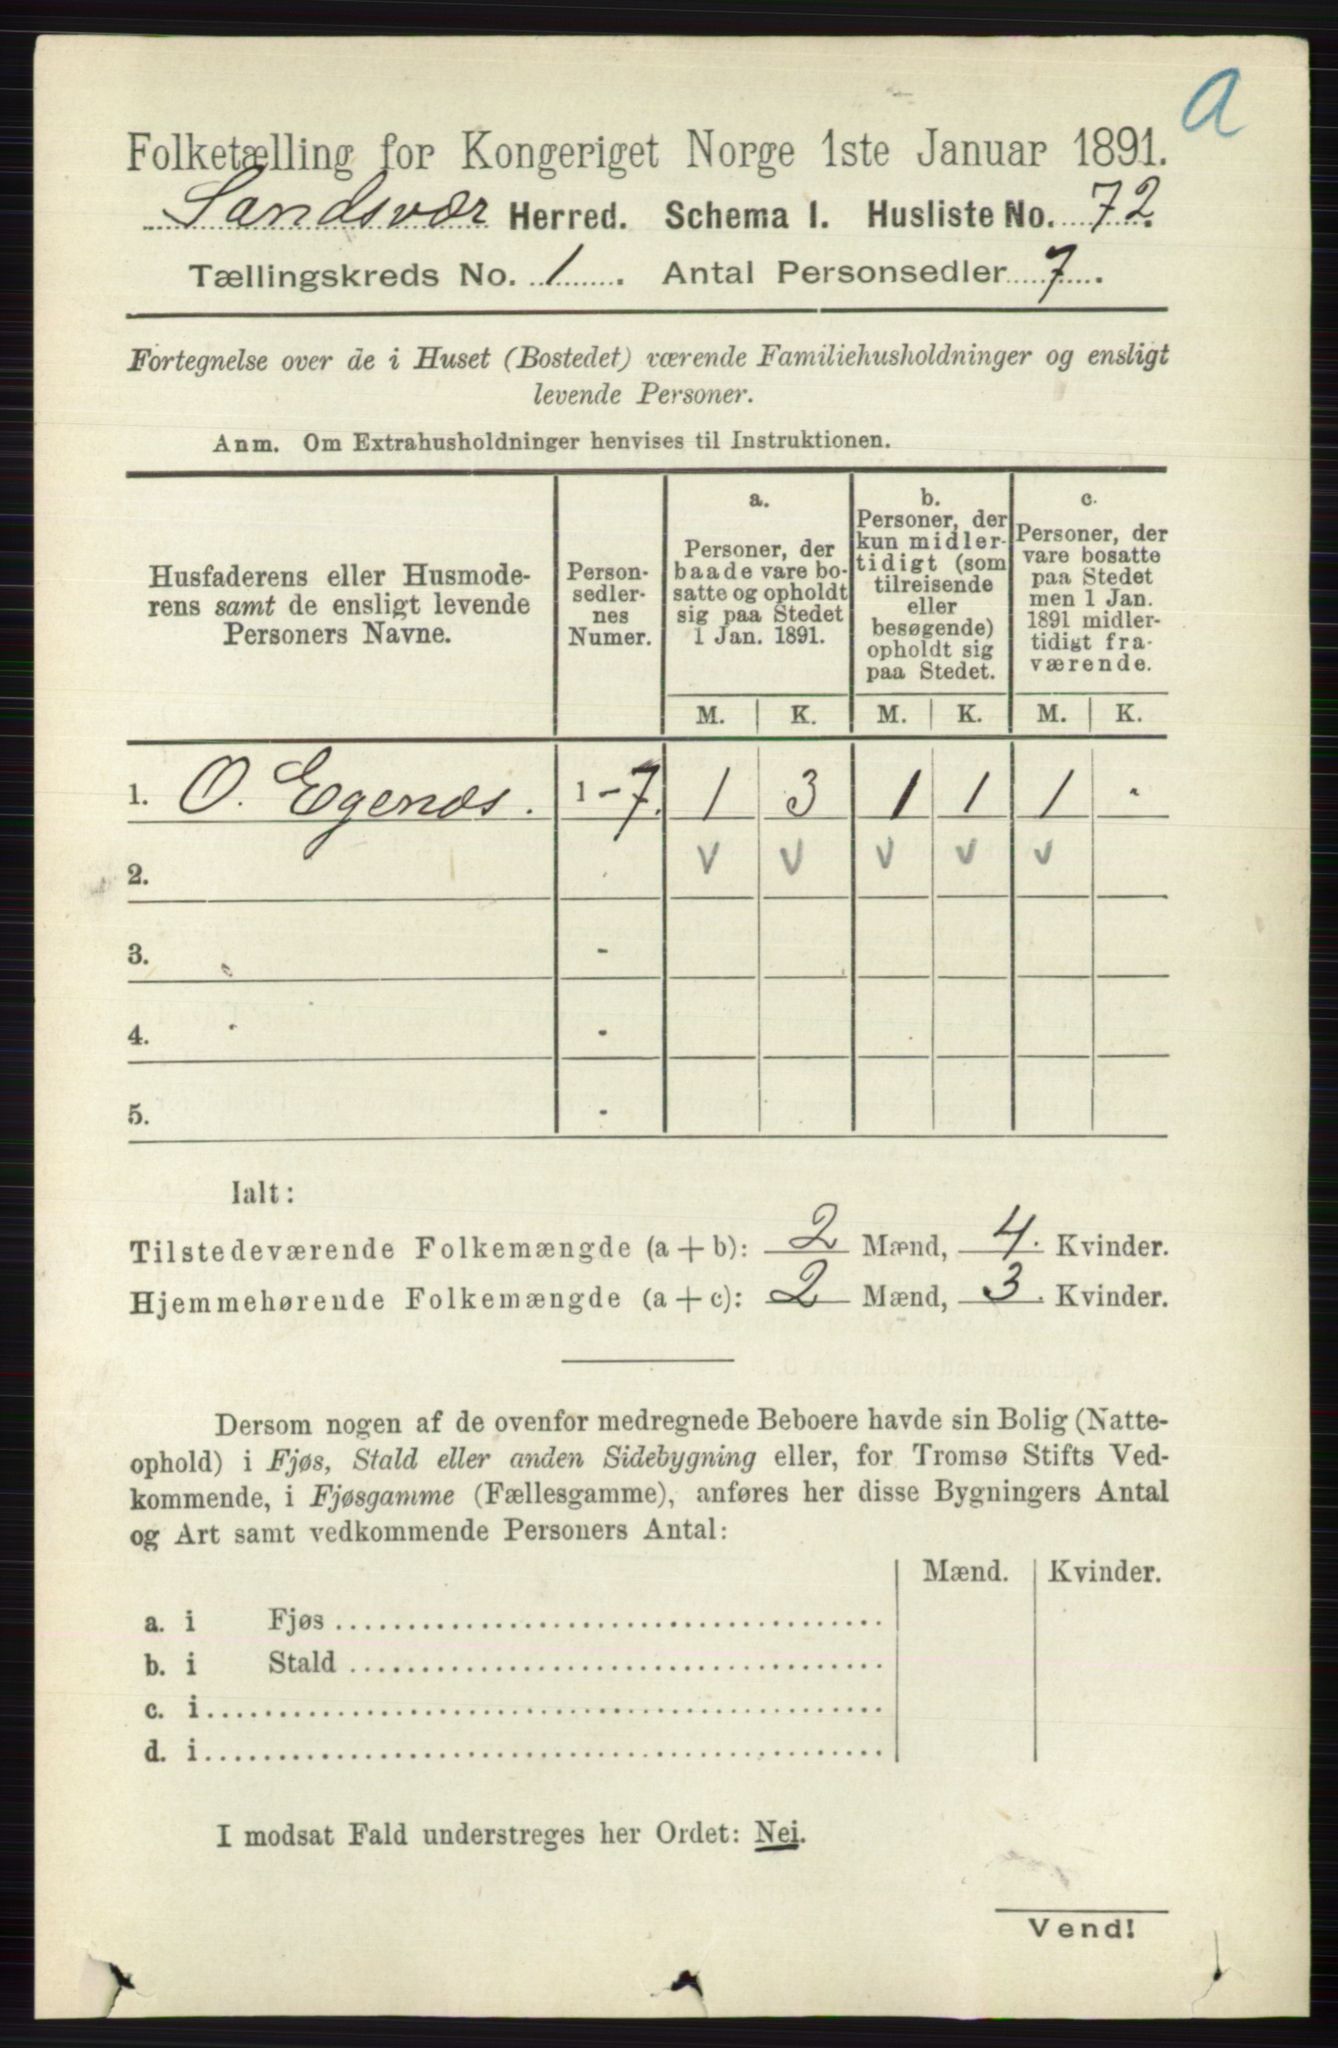 a
Folketælling for Kongeriget Norge 1ste Januar 1891.
Sandsvær Herred. Schema I. Husliste No. 72.
Tællingskreds No. 1. Antal Personsedler 7.
Fortegnelse over de i Huset (Bostedet) værende Familiehusholdninger og ensligt
levende Personer.
Anm. Om Extrahusholdninger henvises til Instruktionen.
Husfaderens eller Husmode-
rens samt de ensligt levende
Personers Navne.
Person-
sedler-
nes
Numer.
a.
Personer, der
baade vare bo-
satte og opholdt
sig paa Stedet
1 Jan. 1891.
b.
Personer, der
kun midler-
tidigt (som
tilreisende
eller
besøgende)
opholdt sig
paa Stedet.
c.
Personer, der
vare bosatte
paa Stedet
men 1 Jan.
1891 midler-
tidigt fra-
værende.
M. K. M. K. M. K.
1. O. Egenæs. 1-7. 1 3 1 1 1 -
2. v v v v v
3. -
4. -
5. -
Ialt:
Tilstedeværende Folkemængde (a + b): 2 Mænd, 4. Kvinder.
Hjemmehørende Folkemængde (a + c): 2 Mænd, 3. Kvinder.
Dersom nogen af de ovenfor medregnede Beboere havde sin Bolig (Natte-
ophold) i Fjøs, Stald eller anden Sidebygning eller, for Tromsø Stifts Ved-
kommende, i Fjøsgamme (Fællesgamme), anføres her disse Bygningers Antal
og Art samt vedkommende Personers Antal:
Mænd. Kvinder.
a. i Fjøs
b. i Stald
c. i
d. i
I modsat Fald understreges her Ordet: Nei.
Vend!